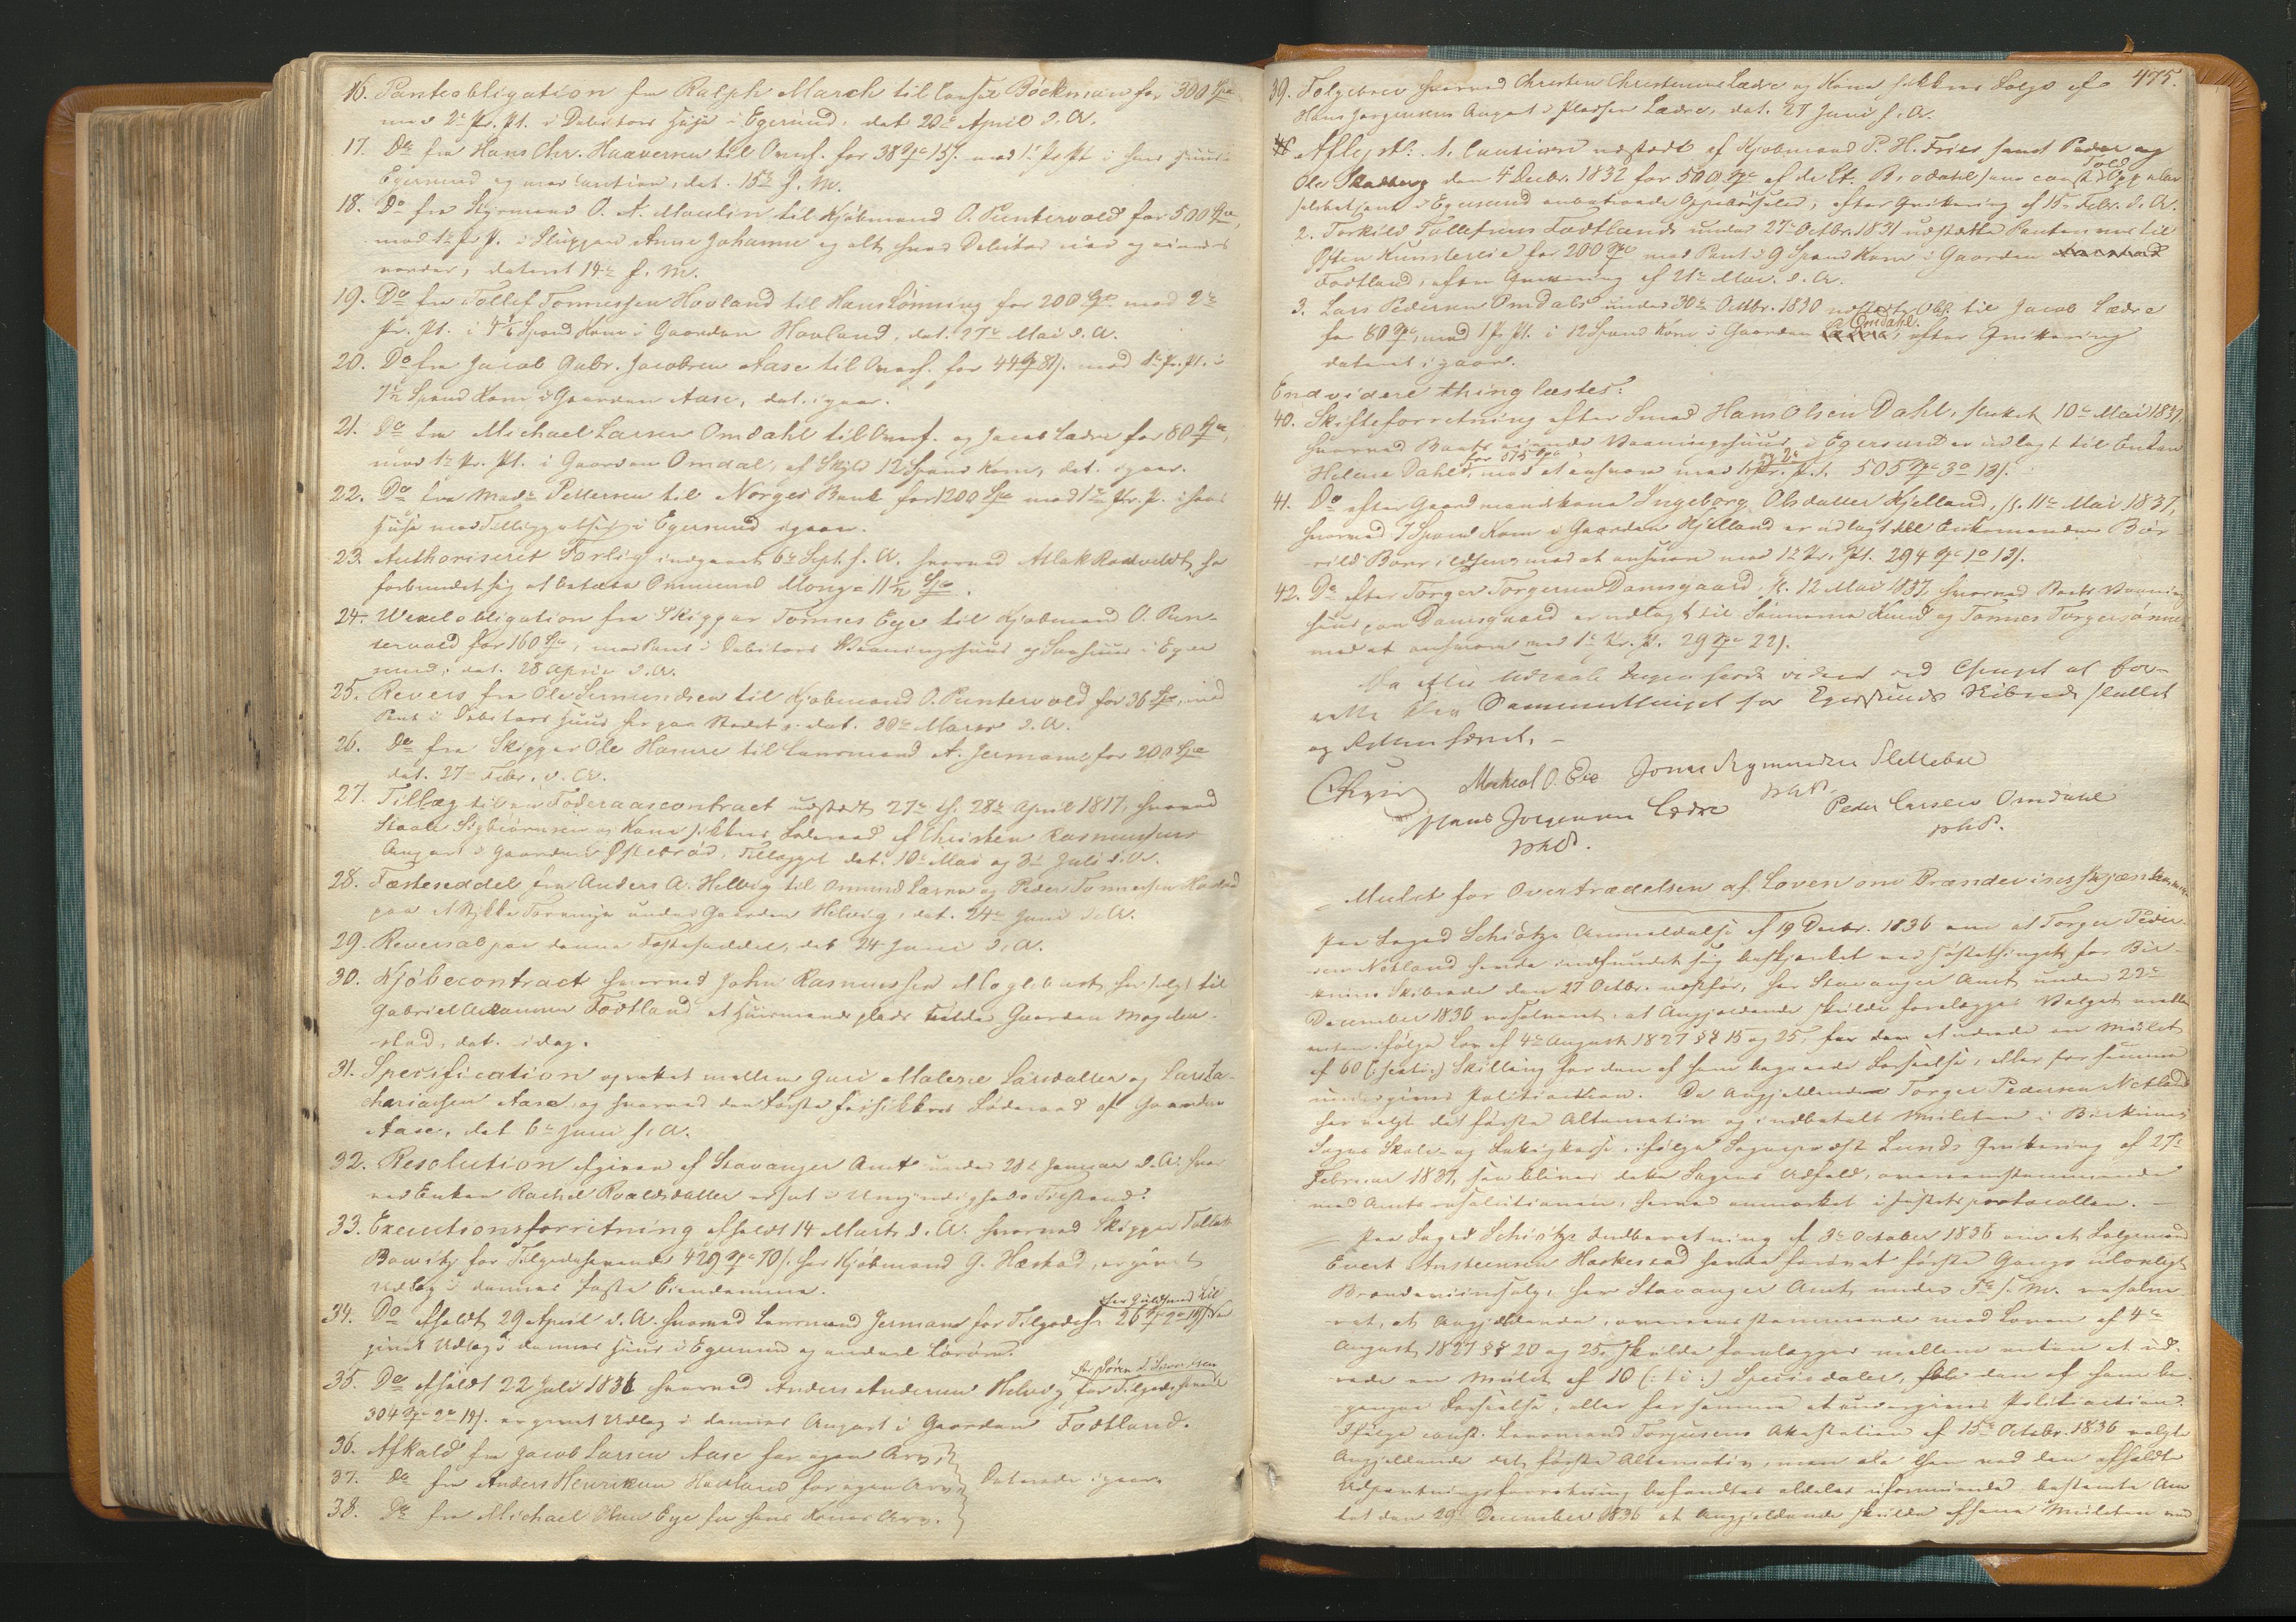 16. Panteobligation fra Ralph March til Consul Böckman for 300 Spd
med 2den Pr. Pt. i Debitors Huse i Egersund, dat 20de April d. A.
17. Do fra Hans Chr. Haaversen til Overf. for 38 Spd 15 s. med 1ste Pr Pt i hans Huus i
Egersund og med Caution, dat. 15de f. M.
18. Do fra Styrmand O. A. Maulin til Kjöbmand O. Puntervold for 500 Spd,
med 1ste Pr. Pt. i Sluppen Anne Johanne og alt hvad Debitor eier og eiendes
vorder, dateret 14de f. M.
19. Do fra Tollef Tønnessen Hovland til Hans Lönning for 200 Spd med 2den
Pr. Pt. i Spand Korn i Gaarden Hovland, dat. 27de Mai d. A.
20. Do fra Jacob Gabr. Jacobsen Aase til Overf. for 44 Spd 81 s. med 1ste Pr. Pt. i
Spand Korn i Gaarden Aase, dat. igaar.
21. Do fra Michael Larsen Omdahl til Overf. og Jacob Lædre for 80 Spd,
med 1ste Pr. Pt. i Gaarden Omdal, af Skyld 12 Spand Korn, dat. igaar.
22. Do fra Mads Pettersen til Norges Bank for 1200 Spd med 1ste Pr. P. i hans
Huse med Tilliggelser i Egersund igaar.
23. Authoriseret Forlig indgaaet 6te Sept. f. A. hvorved Atlak Rodvelt har
forbundet sig at betale Ommund Monge 11½ Spd.
24. Wexelobligation fra Skipper Tønnes Eye til Kjøbmand O. Pun-
tervold for 160 Spd, med Pant i Debitors Vaaningshuus og Søehuus i Eger
sund, dat. 28 April d. A.
25. Revers fra Ole Semundsen til Kjøbmand O. Puntervold for 36 Spd, med
Pant i Debitors Huus her paa Stedet, dat. 30te Marts d. A.
26. Do fra Skipper Ole Hansen til Lensmand A. Jermans for 200 Spd
dat. 27de Febr. d. A.
27. Tillæg til en Föderaadscontract udstedt 27de th. 28de April 1817, hvorved
Staale Sigbiörnsen og Kone sikkres Föderaad af Christen Rasmussens
Anpart i Gaarden Østebrød, Tillægget dat. 10de Mai og 3die Juli d. A.
28. Fæsteseddel fra Anders A. Helvig til Osmund Larsen og Peder Tønnessen
paa et Stykke Torvmyr under Gaarden Helvig, dat. 24de Juni d. A.
29. Reversal paa denne Fæsteseddel, dat 24 Juni d. A.
30. Kjöbecontract hvorved John Rasmussen Moglebust har solgt til
Gabriel Aanensen Fodtland et Huusmandsplads Gaarden Mogle-
stad, dat. idag.
31. Specification oprettet mellem Guri Malene Larsdatter og Lars Za-
chariasen Aase, og hvorved den første forsikkres Föderaad af Gaarden
Aase, dat 6te Juni f. A.
32. Resolution afgiven af Stavanger Amt under 28de Januar d. A., hvor
ved Enken Rachel Roaldsdatter er sat i Umyndigheds Tilstand.
33. Executionsforretning afholdt 14 Marts d. A. hvorved Skipper Tollak
Bowitz for Tilgodehavende 429 Spd 70 s. hos Kjöbmand G. Hæstad, er givet
Udlæg i dennes faste Eiendomme.
34. Do afholdt 29 April d. A. hvorved Lensmand Jermans for Tilgodeh. 26 Spd
givet Udlæg i dennes Huus i Egersund og endeel Lösöre.
hos Sören S. Severdsen
35. Do afholdt 22 Juli 1836 hvorved Anders Andersen Helvig for Tilgodehavende
304 Spd 2 Ort 19 s. er givet Udlæg i dennes Anpart i Gaarden Fodtland.
36. Afkald fra Jacob Larsen Aase for egen Arv,
37. Do fra Anders Henriksen Hovland for egen Arv, Daterede igaar.
38. Do fra Michael Olsen Eye for hans Kones Arv.
475.
39. Følgebrev hvorved Christen Christensen Lædre og Kone sikkres Følge af
Hans Jørgensens Anpart i Pladsen Lædre, dat. 27 Juni f. A.
Aflyst: 1. Cautionen udstædt af Kjøbmand P. H. Fries samt Peder og
Told
Ole Skadberg den 5 Decbr. 1832 for 500 Spd af
i Egersund anbetroede Oppebörseler, efter Qvittering af 15 Febr. d. A.
2. Torkild Tollefsens Fodtlands under 27de Octbr. 1831 udstædte Pantebrev til
Peter Kunsterud for 200 Spd med Pant i 9 Spand Korn i Gaarden
Fodtland, efter Qvittering af 21de Mai d. A.
3. Lars Pedersen Omdals under 30te Octbr. 1830 udstædte Obl. til Jacob Lædre
Omdahl
for 80 Spd, med 1 Pr Pt. i 12 Spand Korn i Gaarden efter Qvittering
dateret igaar.
Endvidere thinglæstes:
40. Skifteforretning efter Smed Hans Olsen Dahl, sluttet 10de Mai 1837,
hvorved Boets eiende Vaaningshuus i Egersund er udlagt til Enken
for 575 Spd og 2den
Helene Dahl, mod at ansvare med 1ste Pr. Pt. 505 Spd 3 Ort 13 s.
41. Do efter Gaardmandskone Ingeborg Olsdatter Kjelland, sl. 11te Mai 1837,
hvorved 7 Spand Korn i Gaarden Kjelland er udlagt til Enkemanden Bø-
rild Borrildsen, mod at ansvare med 1ste Pr. Pt. 294 Spd 1 Ort 13 s.
42. Do efter Torger Torgersen Damsgaard, sl. 12 Mai 1837, hvorved Boets Vaanings
huus paa Damsgaard er udlagt til Sönnerne Knud og Tønnes Torgersönner
mod at ansvare med 1ste Pr. P. 29 Spd 22 s.
Da efter Udraab Ingen havde videre ved Thinget at fore-
rette blev Sommerthinget for Egersunds Skibrede sluttet
og Retten hævet. –
Michael O. Eie Jonas Sigmundsen Slettebøe
m.h.P.
Hans Jorgensen Lædre Peder Larsen Omdahl
m.h.P. m.h.P.
– Mulct for Overtrædelsen af Loven om Brændeviinsskjænken
Paa Foged Schiötz Anmeldelse af 19 Decbr. 1836 om at Torger Peder-
sen Netland havde indfundet sig beskjænket ved Høstethinget for Bir-
krems Skibrede den 27 Octbr. nestfør, har Stavanger Amt under 22de
December 1836 resolveret, at Angjeldende skulde forelægges Valget mellem
enten ifölge Lov af 4de August 1827 §§ 15 og 25, at udrede en Mulct
af 60 (: sexti :) Skilling for den af ham begaaede Forseelse, eller for samme
undergives Politiaction. Da Angjeldende Torger Pedersen Netland
har valgt det første Alternativ og indbetalt Mulcten i Birkrems
Sogns Skole- og Fattigkasse, ifölge Sognepræst Lunds Qvittering af 27de
Februar 1837, saa bliver dette Sagens Udfald, overeensstemmende
med Amts resolutionen, herved anmærket i Justitsprotocollen. –
– Paa Foged Schiötz Indberetning af 3die October 1836 om at Løsgænger
Evert Ansteensen Haskestad havde forøvet første Gangs ulovligt
Brændeviinssalg, har Stavanger Amt under 7de s. M. resolve-
ret, at Angjeldende, overeensstemmende med Loven af 4de
August 1827 §§ 20 og 25, skulde forelægges mellem enten at ud-
rede en Mulct af 10 (: ti :) Speciedaler, for den af ham be-
gangne Forseelse, eller for samme at undergives Politiaction.
Ifölge const. Lensmand Torjusens Attestation af 15de Octbr. 1836 valgte
Angjeldende det første Alternativ, men da han ved den afholdte
Udpantningsforretning befandtes aldeles uformuende, bestemte Am
tet den 29de December 1836 at Angjeldende skulde afsone Mulcten med